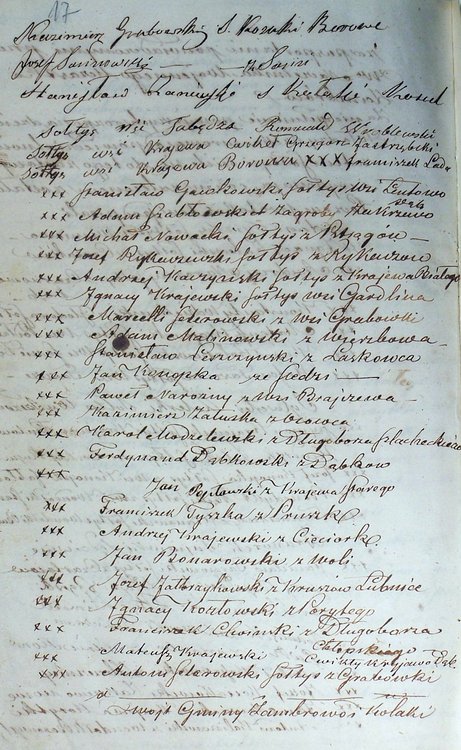 17
Kazimierz Grabowski S. Kozuki Borowe
Józef Sasinowski — z Sasin
Stanisław s
Sołtys wsi Jabędza Romuald Wróblewski
Sołtys wsi Krajewa Ćwikeł Grzegorz Zastrębicki
Sołtys wsi Krajewa Borowa XXX Franciszek
xxx Stanisław Gaczkowski sołtys wsi
xxx Adam Grabkowski z Zagroby
xxx Michał Nowacki sołtys z
xxx Józef Rykaczewski sołtys z Rykaczow
xxx Andrzej Kaczyński sołtys z Krajewa Białego
xxx Ignacy Krajewski sołtys wsi Gardlina
xxx Marcelli Siterowski z wsi Grabowki
xxx Adam Malinowski z Wierzbowa
Stanisław Leszczynski z Laskowca
xxx Jan Konopka ze Śledzi —
xxx Paweł Narożny z wsi Brajczewa —
xxx Kazimierz Załuska z
xxx Karol Modzelewski z Długoborza Szlacheckiego
xxx Ferdynand Dąbkowski z Dąbkow
xxx Jan z Krajewa Starego
xxx Franciszek Tyszka z Pruszk
xxx Andrzej Krajewski z Cieciork
xxx Jan Bonarowski z Woli
xxx Józef z Łubnice
xxx Ignacy Kozłowski z Porytego
xxx Franciszek Choinski z Długoborza
Chłopskiego
xxx Mateusz Krajewski Ćwikły Krajewo
xxx Antoni Siterowski sołtys z Grabowki
Zwójt Gminy Zambrowo i Kołaki